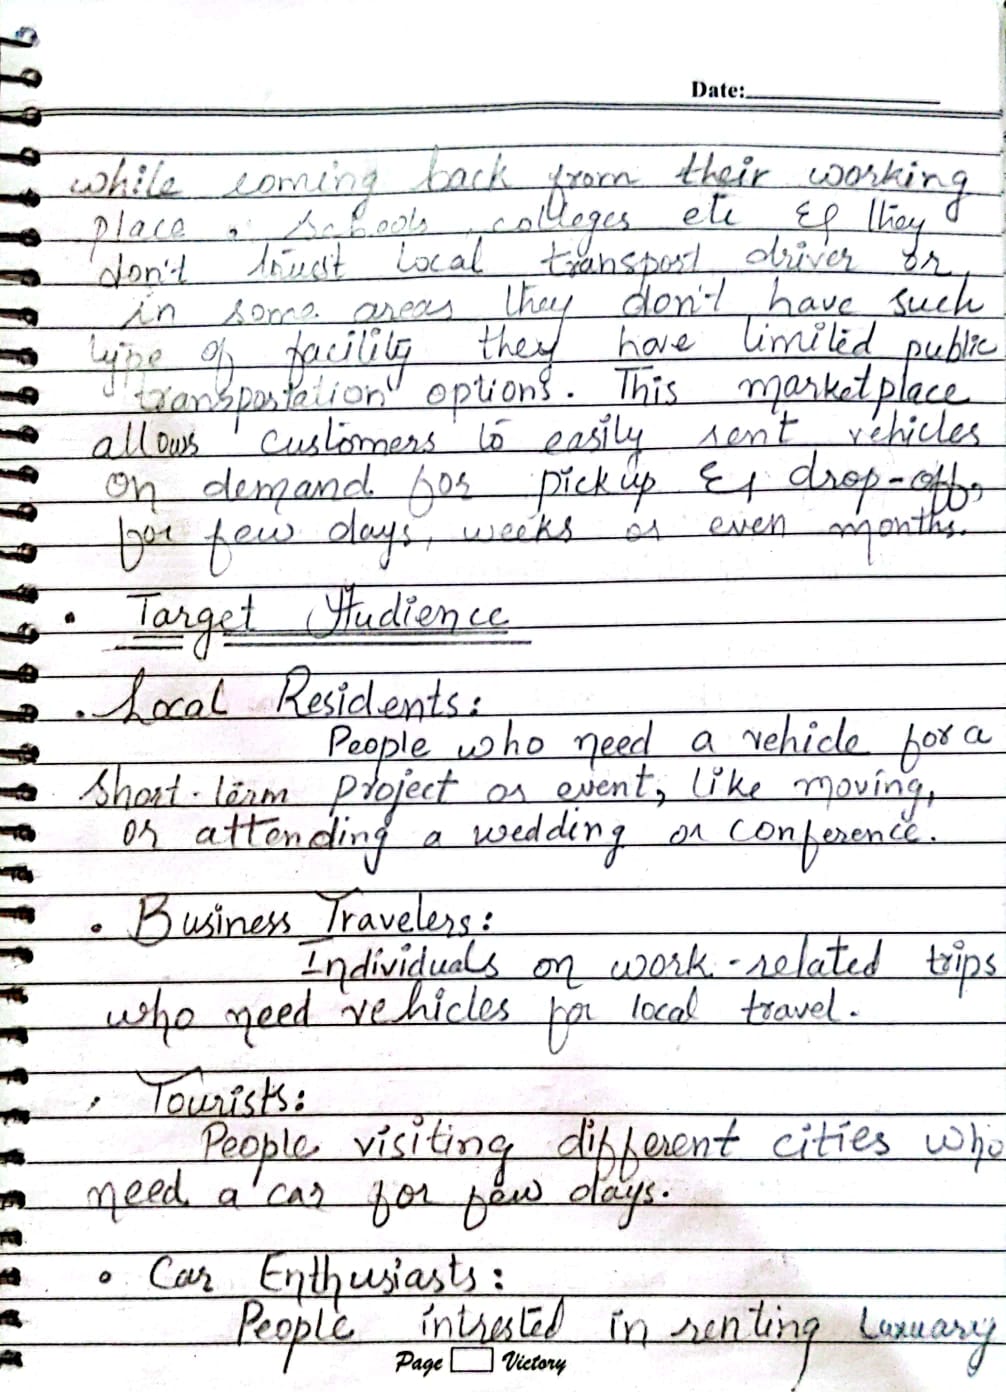 Date:
while coming back from their working
place, schools, colleges etc & they
don't trust local transport driver or
in some areas they don't have such
type of facility they have limited public
transportation options. This marketplace
allows customers to easily rent vehicles
on demand for pickup & drop-off,
for few days, weeks or even months.
• Target Audience
• Local Residents:
People who need a vehicle for a
short-term project or event, like moving,
or attending a wedding or conference.
• Business Travelers:
Individuals on work-related trips
who need vehicles for local travel.
• Tourists:
People visiting different cities who
need a car for few days.
• Car Enthusiasts:
People intrested in renting Luxuary
Page Victory